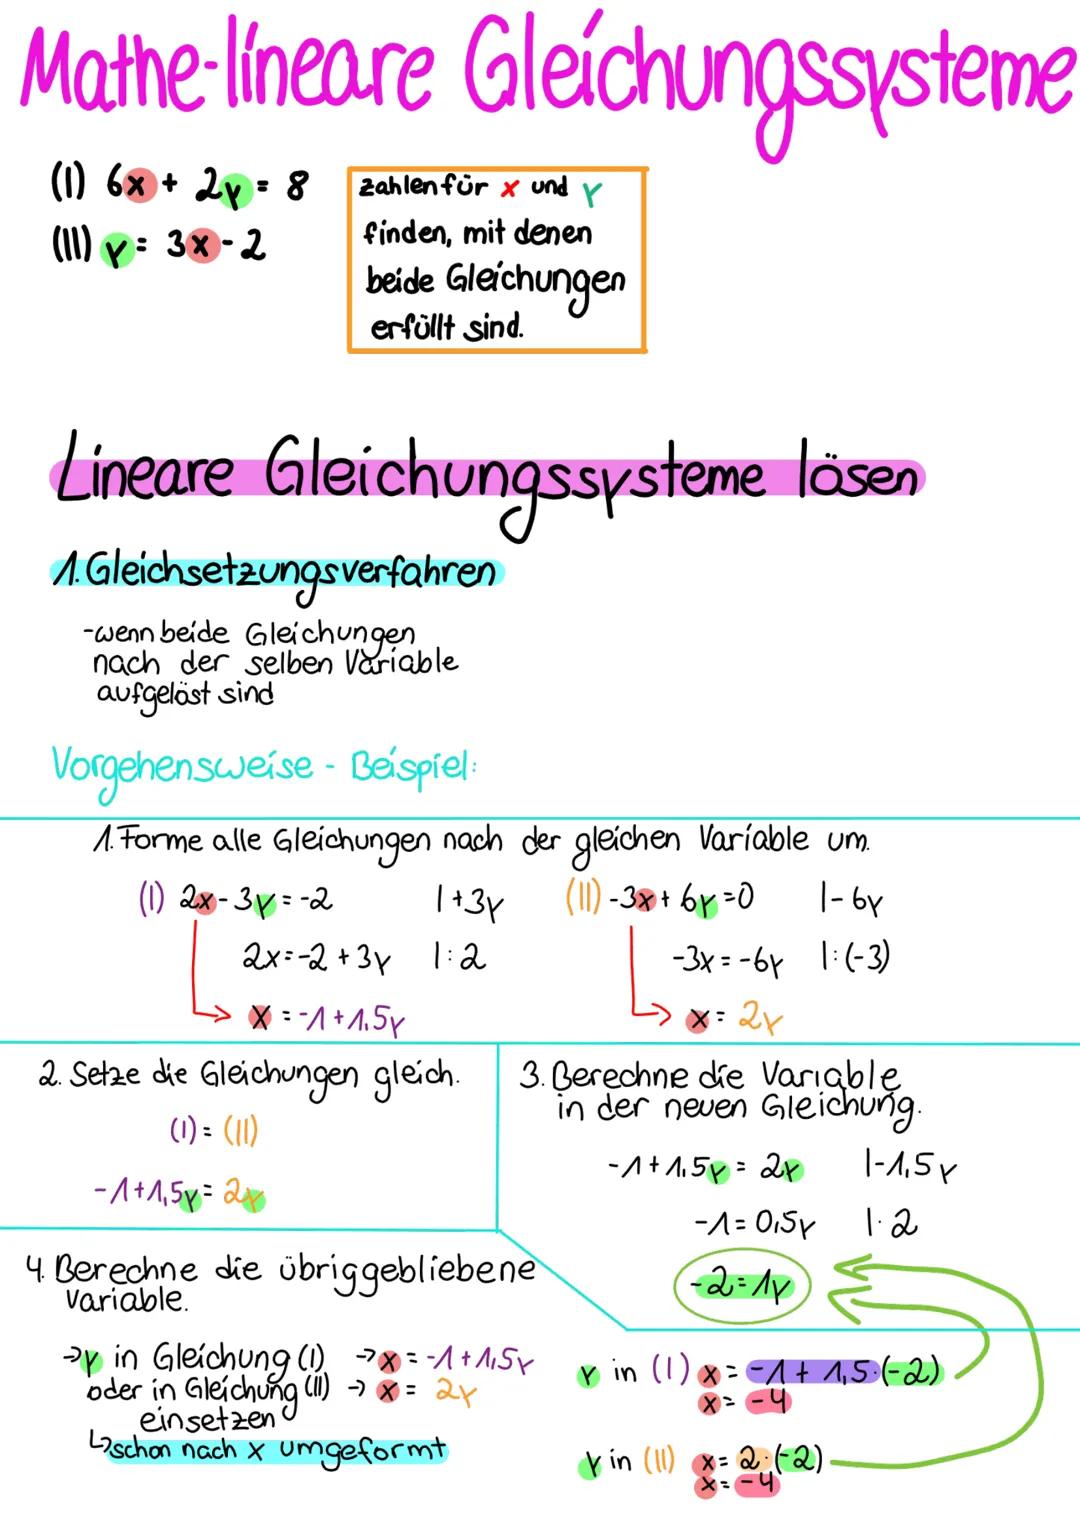 Mathe-lineare Gleichungssysteme
(I) 6x + 2y = 8
(II) y = 3x - 2
zahlen für x und y
finden, mit denen
beide Gleichungen
erfüllt sind.
Lineare Gleichungssysteme lösen
1. Gleichsetzungsverfahren
-wenn beide Gleichungen
nach der selben Variable
aufgelöst sind
Vorgehensweise - Beispiel:
1. Forme alle Gleichungen nach der gleichen Variable um.
(I) 2x - 3y = -2 | +3y
2x = -2 + 3y | : 2
x = -1 + 1,5y
(II) -3x + 6y = 0 | - 6y
-3x = -6y | : (-3)
x = 2y
2. Setze die Gleichungen gleich.
(I) = (II)
-1 + 1,5y = 2y
3. Berechne die Variable
in der neuen Gleichung.
-1 + 1,5y = 2y | -1,5y
-1 = 0,5y | · 2
-2 = 1y
4. Berechne die übriggebliebene
Variable.
→ y in Gleichung (I) → x = -1 + 1,5y
oder in Gleichung (II) → x = 2y
einsetzen
↳ schon nach x umgeformt
y in (I) x = -1 + 1,5 · (-2)
x = -4
y in (II) x = 2 · (-2)
x = -4